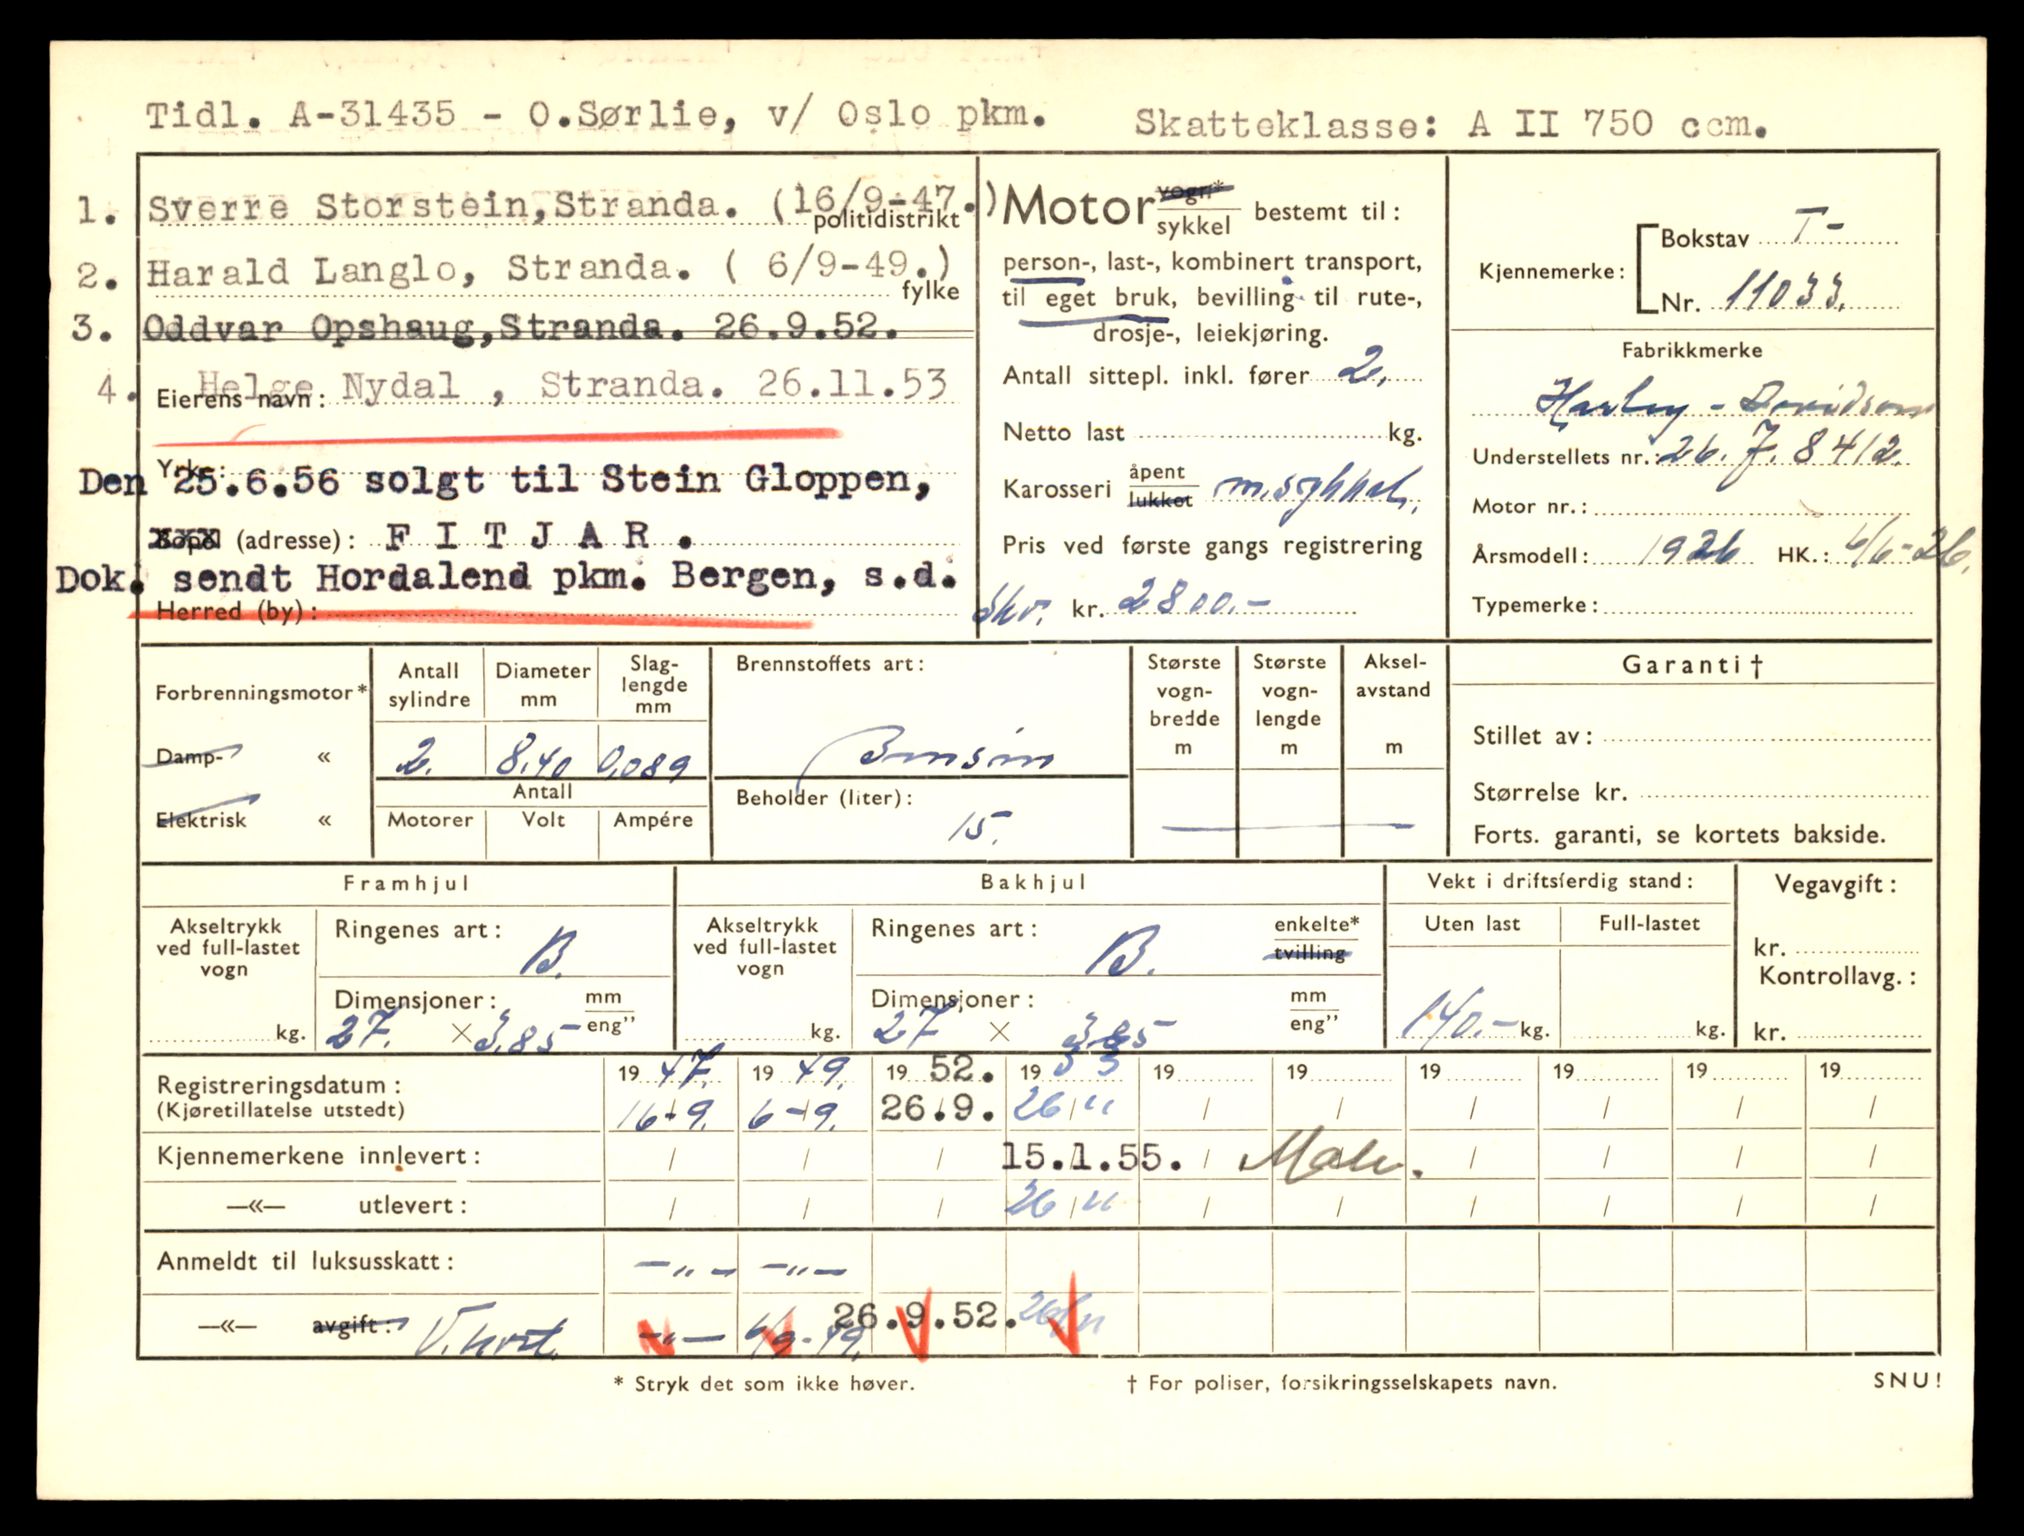 Tidl. A-31435 - O.Sørlie, v/ Oslo pkm. Skatteklasse: A II 750 ccm.
1. Sverre Storstein,Stranda. (16/9-47.)
politidistrikt
2. Harald Langlo, Stranda. ( 6/9-49.)
fylke
3. Oddvar Opshaug,Stranda. 26.9.52.
4. Helge Nydal , Stranda. 26.11.53
Eierens navn:
Yrke:
Den 25.6.56 solgt til Stein Gloppen,
Bopel (adresse): F I T J A R .
Dok. sendt Hordalend pkm. Bergen, s.d.
Herred (by):
Motor vogn* sykkel bestemt til:
person-, last-, kombinert transport,
til eget bruk, bevilling til rute-,
drosje-, leiekjøring.
Antall sittepl. inkl. fører 2.
Netto last kg.
Karosseri åpent lukket
Pris ved første gangs registrering
Skv. kr. 2800.-
Kjennemerke: Bokstav T-
Nr. 11033.
Fabrikkmerke
Harley-Davidson
Understellets nr.: 26. J. 8412.
Motor nr.:
Årsmodell: 1926 HK.: 6/6-26.
Typemerke:
Forbrenningsmotor*
Damp- «
Elektrisk «
Antall sylindre Diameter mm Slag-lengde mm
2. 8,40 0,089
Antall
Motorer Volt Ampére
Brennstoffets art:
Bensin
Beholder (liter):
15.
Største vogn-bredde m
Største vogn-lengde m
Aksel-avstand m
Garanti †
Stillet av:
Størrelse kr.
Forts. garanti, se kortets bakside.
Framhjul
Akseltrykk ved full-lastet vogn kg.
Ringenes art: B.
Dimensjoner: mm eng”
27. × 3,85
Bakhjul
Akseltrykk ved full-lastet vogn kg.
Ringenes art: B. enkelte* tvilling
Dimensjoner: mm eng”
27 × 3.85
Vekt i driftsferdig stand:
Uten last Full-lastet
140.- kg. kg.
Vegavgift:
kr.
Kontrollavg.:
kr.
Registreringsdatum: 19 47. 19 49. 19 52. 19 53 19 19 19 19 19 19
(Kjøretillatelse utstedt) 16-9. 6-9. 26.9. 26/11 / / / / / /
Kjennemerkene innlevert: / / / 15.1.55. / / / / /
—«— utlevert: / / / 26/11 / / / / / /
Anmeldt til luksusskatt: -"- -"-
—«— avgift: -"- 6/9-49. 26.9.52. 26/11
* Stryk det som ikke høver. † For poliser, forsikringsselskapets navn. SNU!